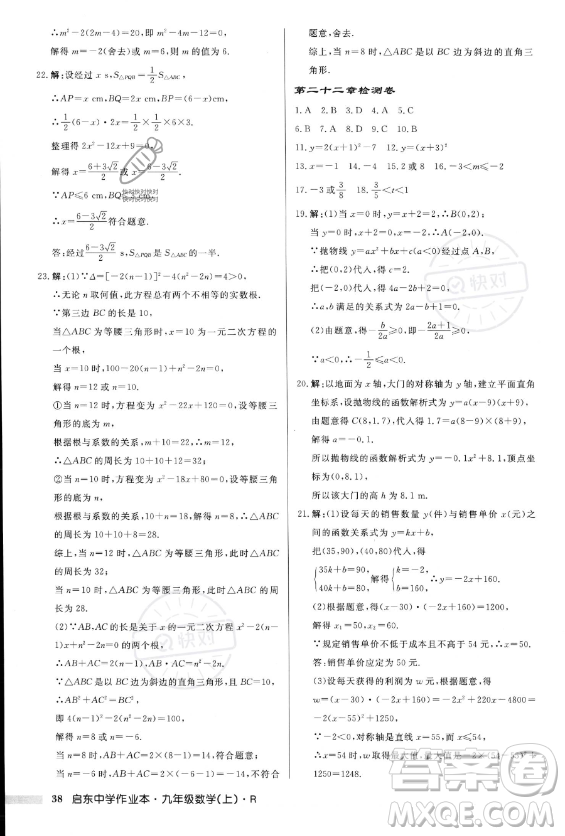 ∴m²−2m=0.
解得m=−2(舍去)或m=6.∴m的值为6.
22.解:设经过x s,S△PQB=1/2 S△ABC.
∴AP=x cm,BQ=2x cm.
∴1/2(6−x)·2x=1/2×1/2×6×3.
整理得
解得x=(6+3√2)/2或x=(6−3√2)/2.
∵AP≤6 cm,BQ≤3 cm,
∴x=(6−3√2)/2符合题意.
答:经过(6−3√2)/2 s,S△PQB是S△ABC的一半.
23.解:(1)∵Δ=[−2(n−1)]²−4(n²−2n)=4>0,
∴无论n取何值,此方程总有两个不等的实数根.
∵第三边BC的长为10,
当△ABC为等腰三角形时,x=10为一元二次方程的
一个根,
当x=10时,100−20(n−1)+n²−2n=0,
解得n=12或n=10,
①当n=12时,方程变为x²−22x+120=0,设等腰三
角形的底边为m,
根据根与系数的关系,m+10=22,解得m=12,
∴△ABC的周长为10+10+12=32;
②当n=10时,方程变为x²−18x+80=0,设等腰三角
形的底边为m,
根据根与系数的关系,m+10=18,解得m=8,
∴△ABC的周长为10+10+8=28.
综上,当n=12时,△ABC为等腰三角形,此时△ABC
的周长为32;
当n=10时,△ABC为等腰三角形,此时△ABC的周长
为28.
(2)∵AB、AC的长是关于x的一元二次方程x²−2(n
−1)x+n²−2n=0的两个实数根,
∴AB+AC=2(n−1),AB·AC=n²−2n.
∵△ABC是以BC为斜边的直角三角形,BC=10,
∴AB²+AC²=BC²,
∴(AB+AC)²−2AB·AC=BC²,
即4(n−1)²−2(n²−2n)=100,
解得n=8或n=−6.
当n=8时,AB+AC=2×(8−1)=14,符合题意;
当n=−6时,AB+AC=2×(−6−1)=−14<0,不符合
题意,舍去.
综上,当n=8时,△ABC是以BC为斜边的直角三
角形.
第二十二章检测卷
1.A 2.D 3.C 4.C 5.A
6.B 7.D 8.B 9.C 10.A
11.y=2(x+1)²−7 12.y=(x+3)²
13.x=−1 14.−4 15.0 16.−3<m≤−2
17.−3或3/8 18.3/8<t<1
19.解:(1)当x=0时,y=x+2=2,
当y=0时,x+2=0,解得x=−2,
∵抛物线y=ax²+bx+c(a<0)
∴代入,得c=2.
把A(−2,0)代入,得4a−2b+2=0,
∴b,a满足的关系式为b=2a+1.
(2)由题意,得−b/2a≥0,即−(2a+1)/2a≥0,
∵a<0,∴−1/2≤a<0.
20.解:以地面为x轴,大门的对称轴为y轴,建立平面直角
坐标系,设抛物线的函数解析式为y=a(x−9)(x+9),
由题意得C(8,1.7),∴1.7=a(8−9)(8+9),
解得a=−0.1.
所以抛物线的函数解析式为y=−0.1x²+8.1,顶点为
(0,8.1).
所以该大门的高为8.1 m.
21.解:(1)设每天的销售数量y(件)与销售单价x(元)之
间的函数关系式为y=kx+b,
把(35,90),(40,80)代入,得
{35k+b=90, 40k+b=80. 解得{k=−2, b=160. ∴y=−2x+160.
(2)根据题意,得(x−30)·(−2x+160)=1200,
解得x₁=50,x₂=60.
∵规定销售单价不低于成本且不高于54元,∴x=50.
答:销售单价应定为50元.
(3)设每天获得的利润为w元,由题意,得
w=(x−30)(−2x+160)=−2x²+220x−4800=
−2(x−55)²+1250,
∵−2<0,对称轴为x=55,而x≤54,
∴x=54时,w取得最大值,最大值是−2×(54−55)²+
1250=1248.
38 启东中学作业本·九年级数学(上)·R